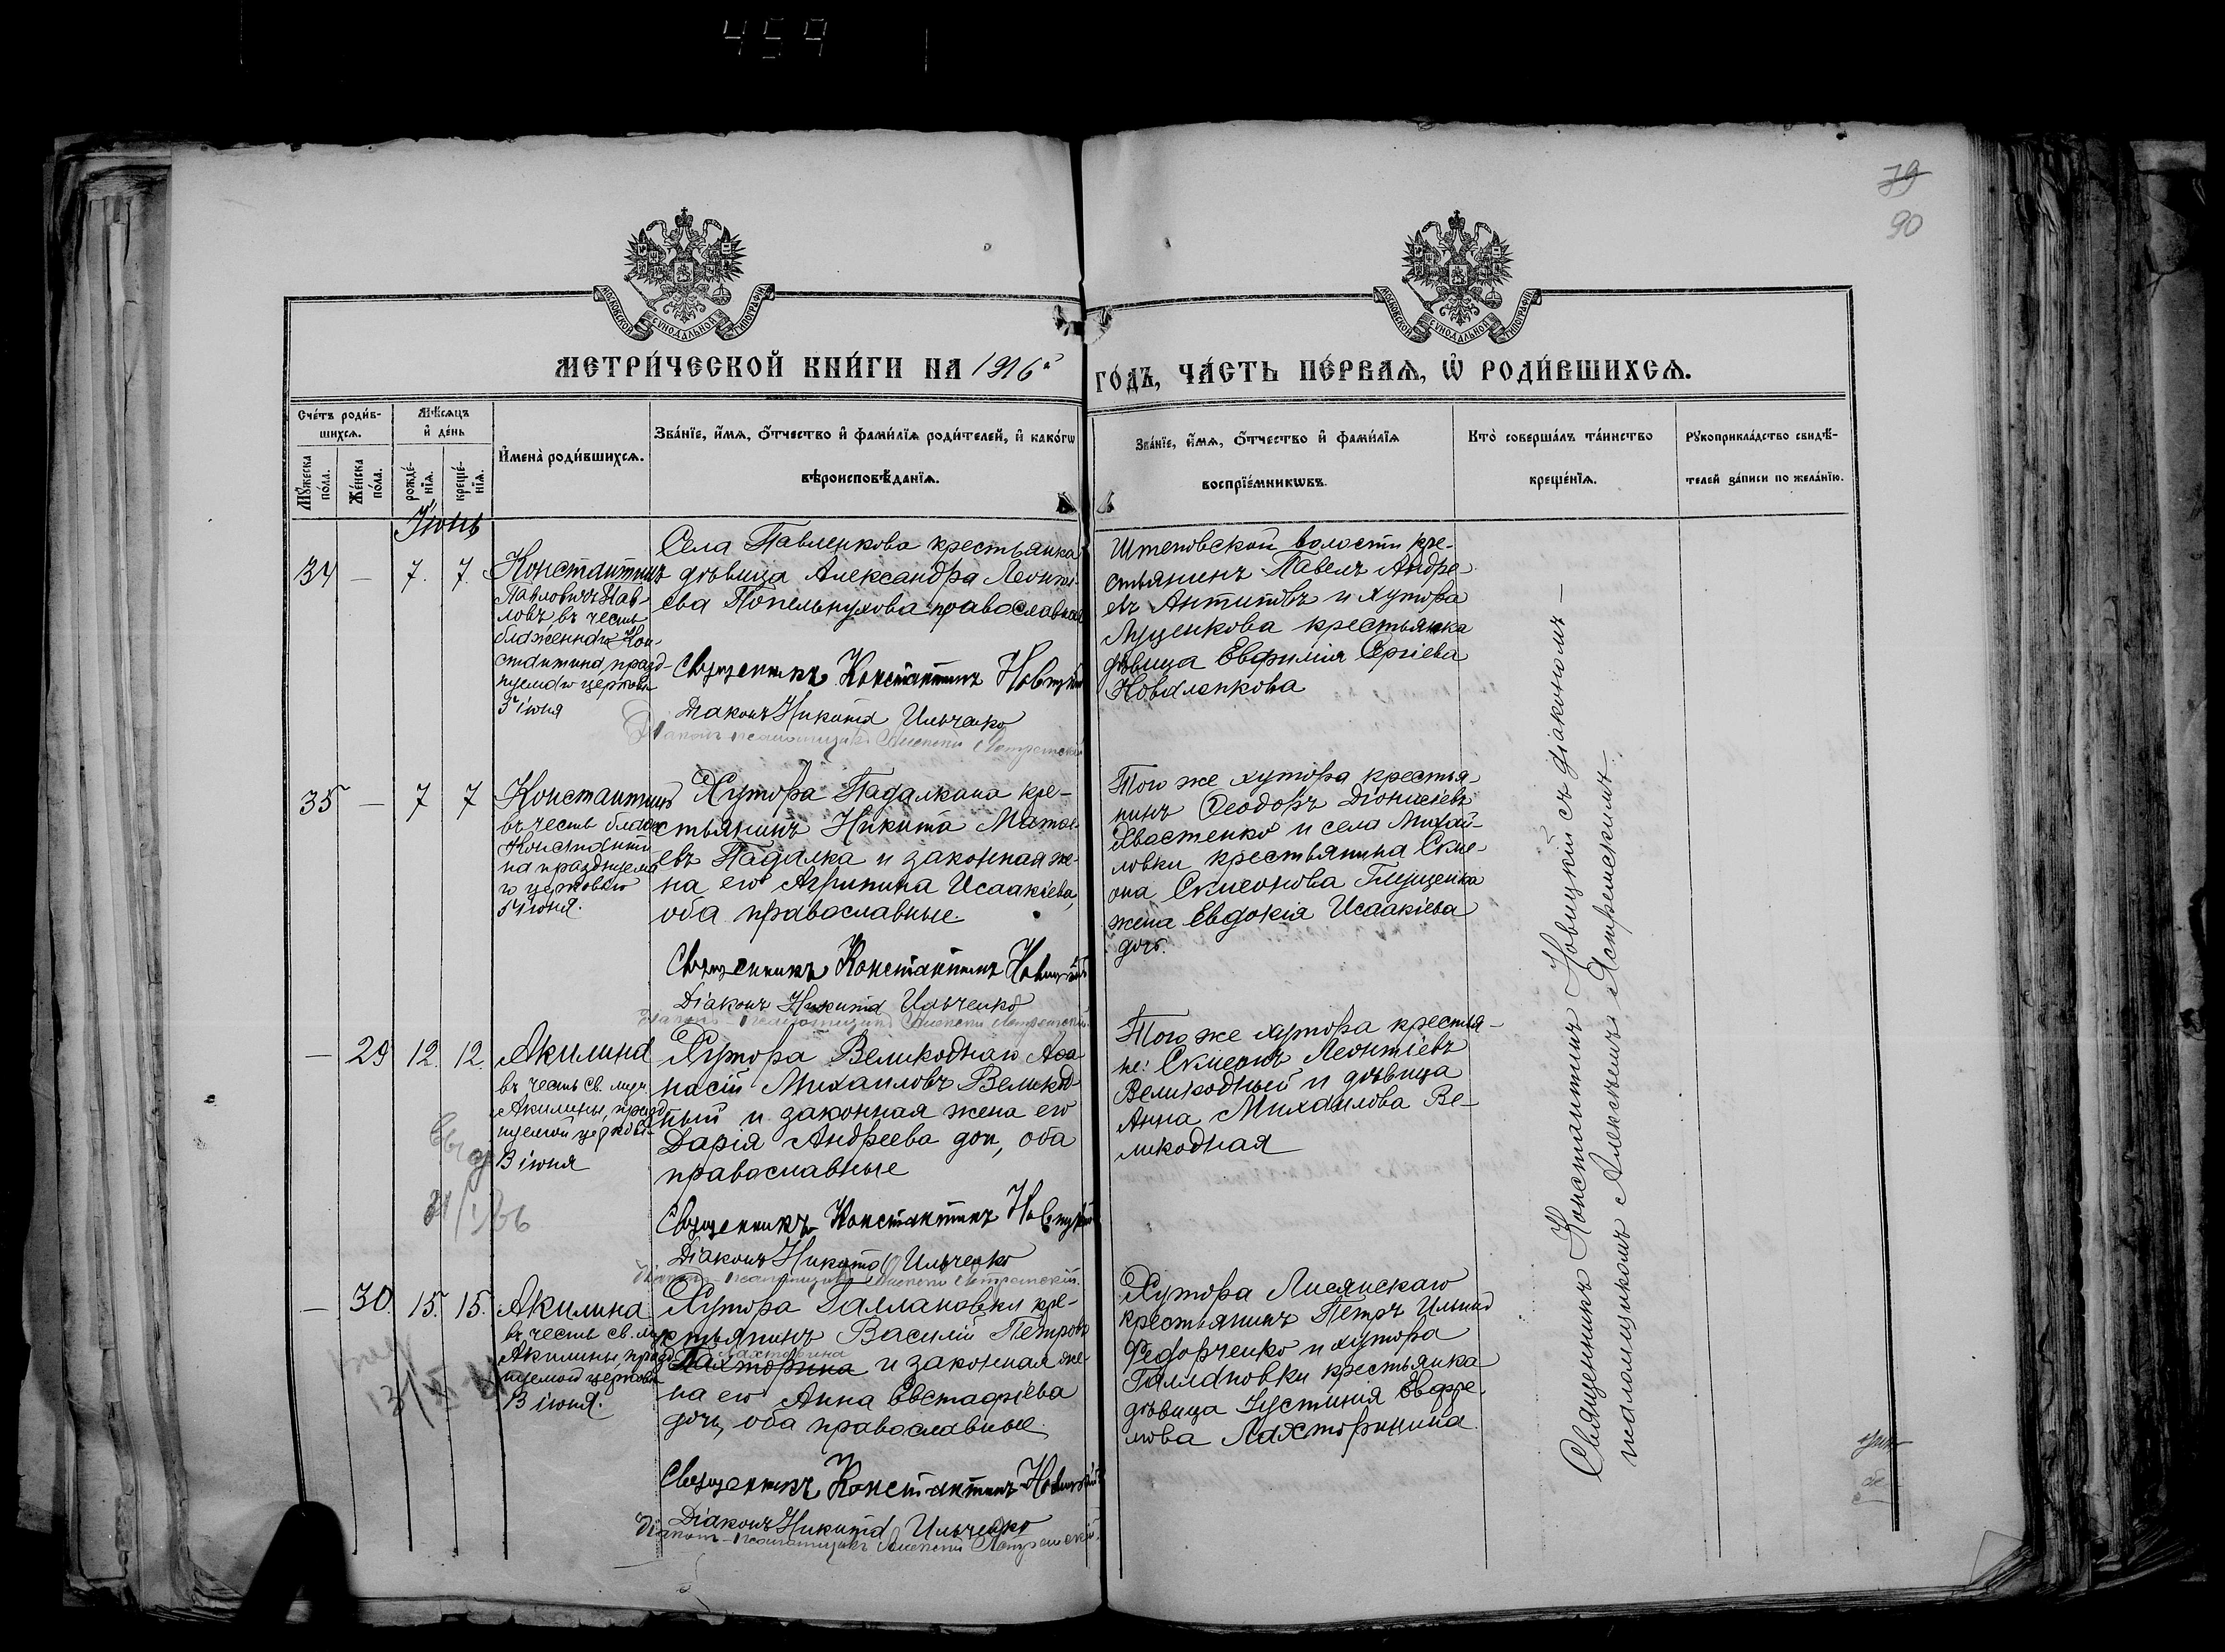 459
79
90
МОСКОВСКОЙ СѴНОДАЛЬНОЙ ТИПОГРАФІИ
МОСКОВСКОЙ СѴНОДАЛЬНОЙ ТИПОГРАФІИ
МЕТРИ́ЧЕСКОЙ КНИ́ГИ НА 1916й
ГО́ДЪ, ЧА́СТЬ ПЕ́РВАѦ, Ѽ РОДИ́ВШИХСѦ.
Сче́тъ роди́в-
шихсѧ.
Мꙋ́жеска по́ла.
Же́нска по́ла.
Мѣ́сѧцъ
и҆ де́нь
рожде́-нїѧ.
креще́-нїѧ.
И҆мена̀ роди́вшихсѧ.
Зва́нїе, и҆́мѧ, ѻ҆́тчество и҆ фами́лїѧ роди́телей, и҆ како́гѡ
вѣроисповѣ́данїѧ.
Зва́нїе, и҆́мѧ, ѻ҆́тчество и҆ фами́лїѧ
воспрїе́мникѡвъ.
Кто̀ соверша́лъ та́инство
креще́нїѧ.
Рꙋкоприкла́дство свидѣ́-
телей за́писи по жела́нїю.
Іюнь
34 — 7. 7.
Константинъ
Павловичъ Пав-
ловъ, въ честь
блаженнаго Кон-
стантина, празд-
нуемаго церковью
3 іюня
Села Павленкова крестьянка
дѣвица Александра Леонть-
ева Попельнухова православная
Священникъ Константинъ Новицкій
Діаконъ Никита Ильченко
Діаконъ-псаломщикъ Алексѣй Ястремскій
Штеповской волости кре-
стьянинъ Павелъ Андре-
евъ Антиповъ и хутора
Луценкова крестьянка
дѣвица Евфимія Сергіева
Коваленкова
35 — 7 7
Константинъ
въ честь блаж.
Константи-
на празднуема-
го церковью
3 іюня.
Хутора Падалкина кре-
стьянинъ Никита Матѳе-
евъ Падалка и законная же-
на его Агрипина Исаакіева,
оба православные.
Священникъ Константинъ Новицкій
Діаконъ Никита Ильченко
Діаконъ-псаломщикъ Алексѣй Ястремскій.
Того же хутора крестья-
нинъ Ѳеодоръ Діонисіевъ
Хвастенко и села Михай-
ловки крестьянина Симе-
она Симеонова Глущенка
жена Евдокія Исаакіева
дочь.
— 29 12. 12.
Акилина
въ честь св. муч.
Акилины, празд-
нуемой церковью
13 іюня
Хутора Великоднаго Аѳа-
насій Михаиловъ Великод-
ный и законная жена его
Дарія Андреева доч, оба
православные
Священникъ Константинъ Новицкій
Діаконъ Никита Ильченко
Діаконъ-псаломщикъ Алексѣй Ястремскій.
Того же хутора крестья-
не: Симеонъ Леонтіевъ
Великодный и дѣвица
Анна Михаилова Ве-
ликодная
— 30. 15. 15.
Акилина
въ честь св. муч.
Акилины, празд-
нуемой церковью
13 іюня.
Хутора Галлановки кре-
стьянинъ Василій Петровъ
Лахторина
Пахторина и законная же-
на его Анна Евстафіева
дочь, оба православные.
Священникъ Константинъ Новицкій
Діаконъ Никита Ильченко
Діаконъ-псаломщикъ Алексѣй Ястремскій.
Хутора Лисянскаго
крестьянинъ Петръ Ильинъ
Федорченко и хутора
Галлановки крестьянка
дѣвица Іустинія Евфре-
мова Лахторинина
Священникъ Константинъ Новицкій съ діакономъ —
псаломщикомъ Алексѣемъ Ястремскимъ.